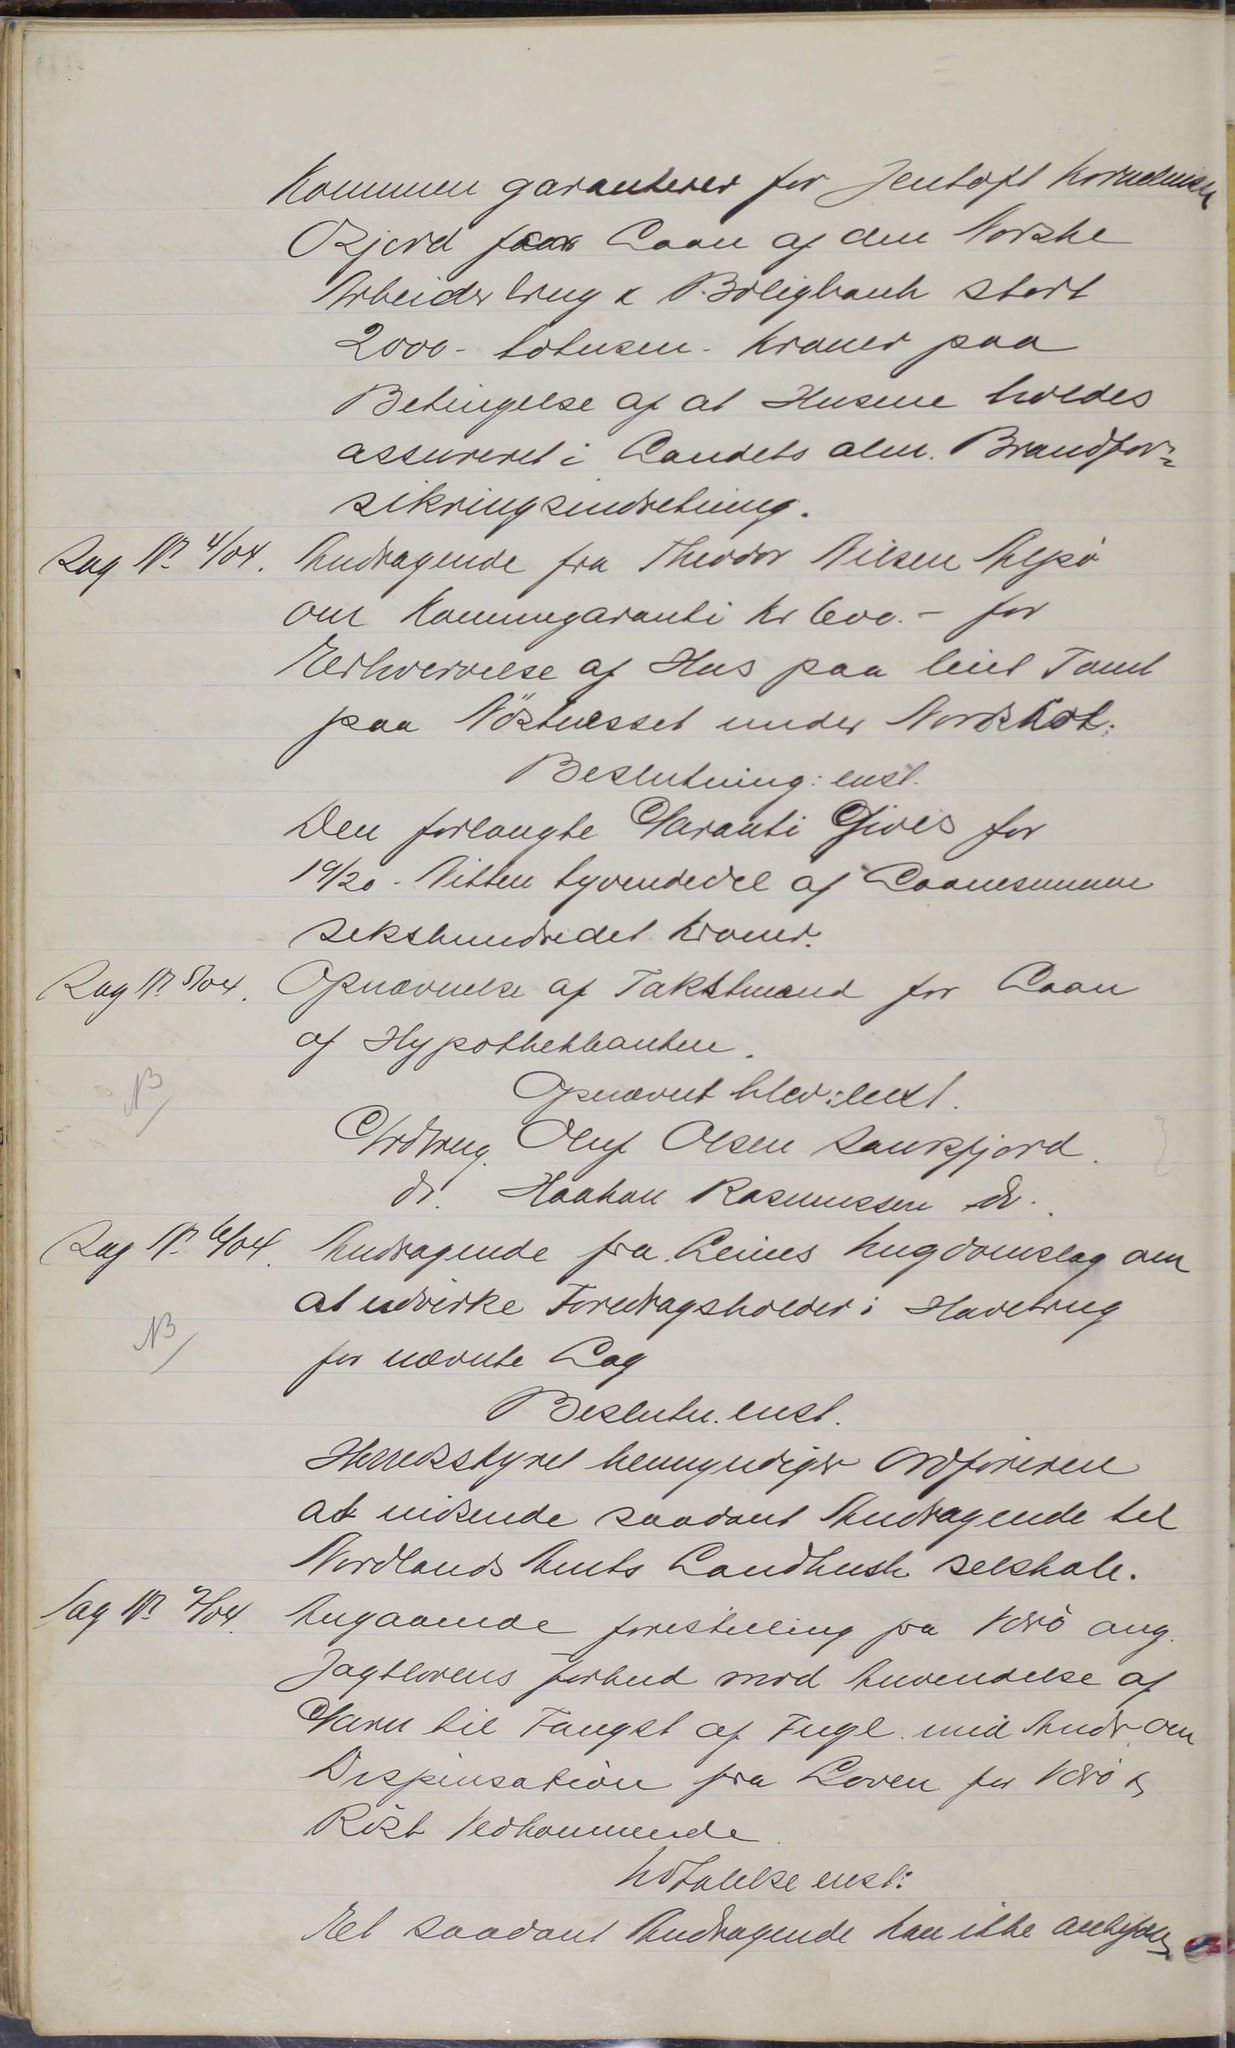 Kommunen garanterer for Jentoft Kornelius
Oxjord faar Laan af den Norske
Arbeiderbrug & Boligbank stort
2000 - totusen - Kroner paa
Betingelse af at Husene holdes
assureret i Landets alm. Brandfor=
sikringsindretning.
Sag No 4/04. Andragende fra Theodor Nilsen
om Kommungaranti Kr 600.- for
Erhvervelse af Hus paa leiet Tomt
paa Nöstnesset under Nordskot:
Beslutning: enst.
Den forlangte Garanti Gives for
19/20 - Nitten tyvendedel af Laanesummen
sekshundredet Kroner.
Sag No 5/04. Opnævnelse af Takstmænd for Laan
af Hypothekbanken.
NB
Opnævnt blev: enst.
Grdbrug. Oluf Olsen Laukfjord.
do. Haakon Rasmussen do.
Sag No 6/04. Andragende fra Leines Ungdomslag om
at udvirke Foredragsholder i Havebrug
NB
for nævnte Lag
Beslutn. enst.
Herredsstyret bemyndiger Ordföreren
at indsende saadant Andragende til
Nordlands Amts Landhush. selskab.
Sag No 7/04. Angaaende forestilling fra Værö ang.
Jagtlovens forbud mod Anvendelse af
Garn til Fangst af Fugl med Andr. om
Dispensation fra Loven for Værö &
Röst Vedkommende.
Udtalelse enst:
Et saadant Andragende kan ikke anbefales